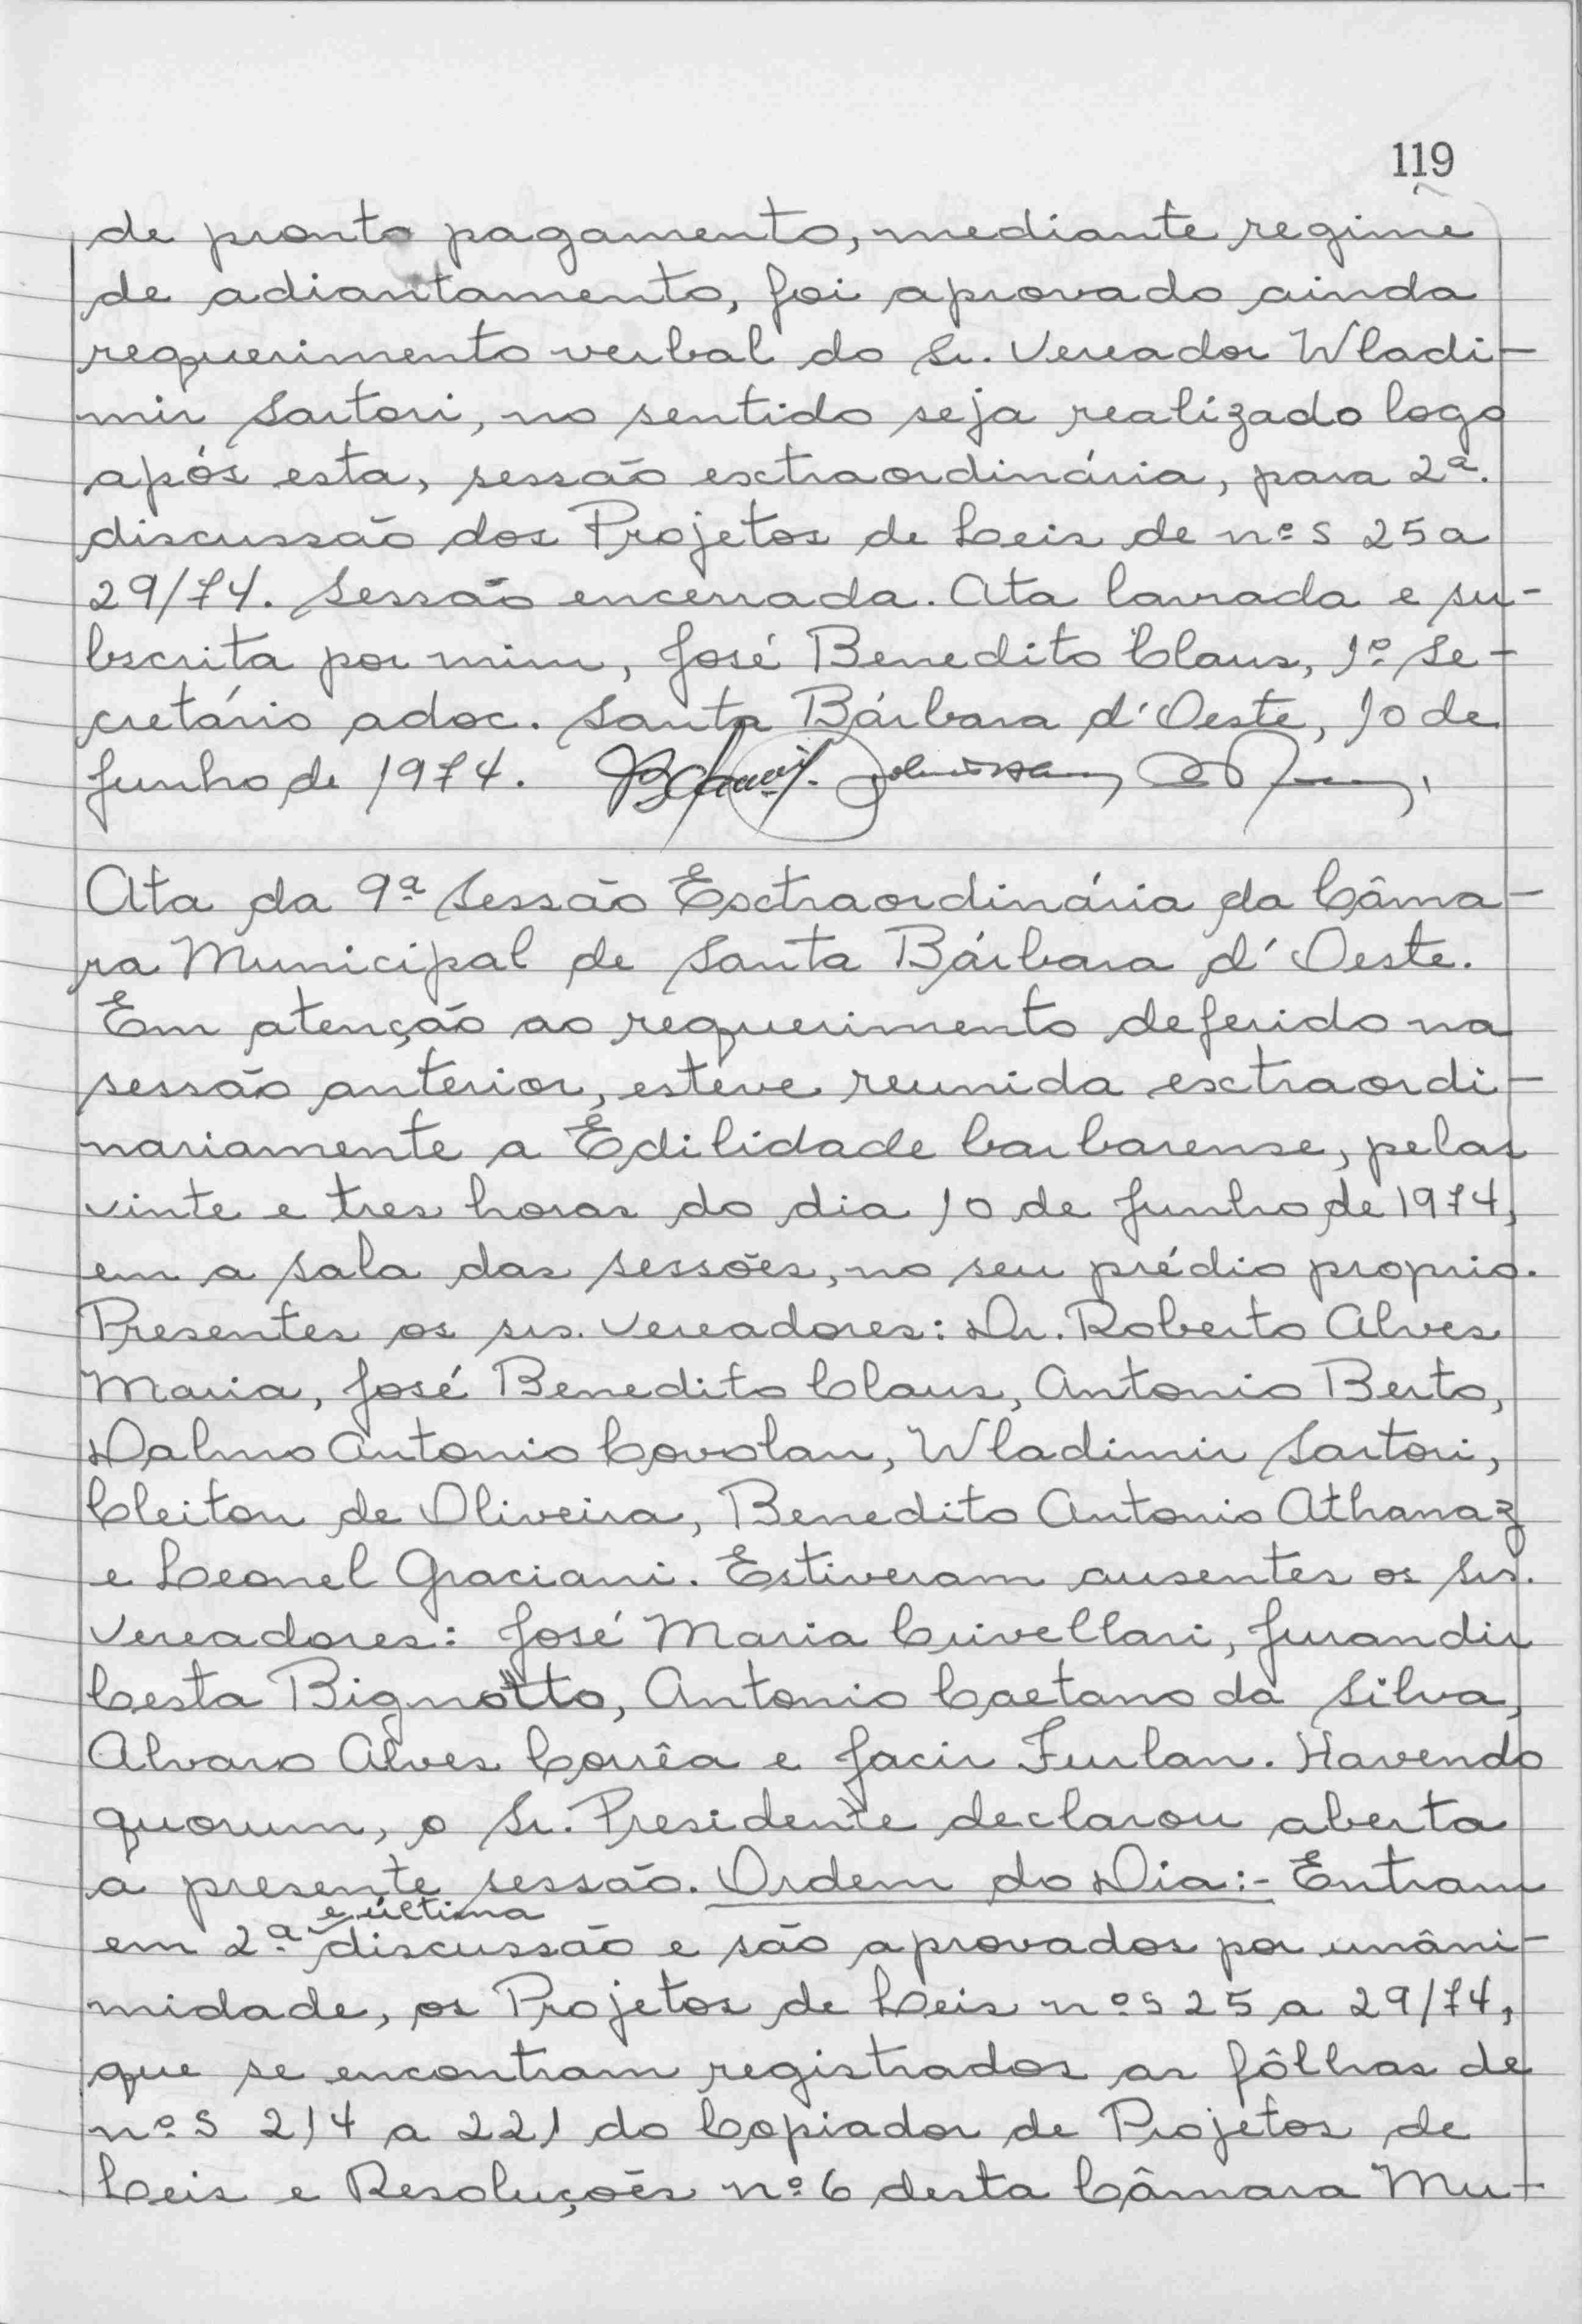 119
de pronto pagamento, mediante regime
de adiantamento, foi aprovado ainda
requerimento verbal do Sr. Vereador Wladi-
mir Sartori, no sentido seja realizado logo
após esta, sessão extraordinária, para 2ª.
discussão dos Projetos de Leis de nºs 25 a
29/74. Sessão encerrada. Ata lavrada e su-
bscrita por mim, José Benedito Claus, 1º Se-
cretário adoc. Santa Bárbara d'Oeste, 10 de
Junho de 1974.
Ata da 9ª Sessão Extraordinária da Câma-
ra Municipal de Santa Bárbara d'Oeste.
Em atenção ao requerimento deferido na
sessão anterior, esteve reunida extraordi-
nariamente a Edilidade barbarense, pelas
vinte e tres horas do dia 10 de Junho de 1974,
em a sala das sessões, no seu prédio proprio.
Presentes os srs. Vereadores: Dr. Roberto Alves
Maria, José Benedito Claus, Antonio Berto,
Dalmo Antonio Covolan, Wladimir Sartori,
Cleiton de Oliveira, Benedito Antonio Athanaz
e Leonel Graciani. Estiveram ausentes os Srs.
Vereadores: José Maria Crivellari, Jurandir
Cesta Bignotto, Antonio Caetano da Silva,
Alvaro Alves Corrêa e Jacir Furlan. Havendo
quorum, o Sr. Presidente declarou aberta
a presente sessão. Ordem do Dia:- Entram
em 2ª. e última discussão e são aprovados por unâni-
midade, os Projetos de Leis nºs 25 a 29/74,
que se encontram registrados as fôlhas de
nºs 214 a 221 do Copiador de Projetos de
Leis e Resoluções nº 6 desta Câmara Mu-